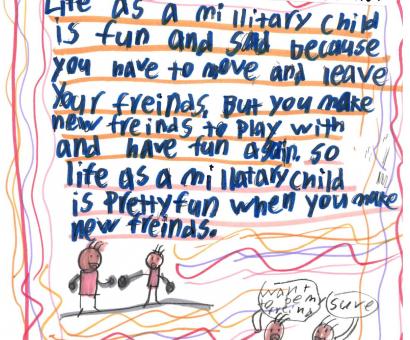 Life as a millitary child
is fun and sad because
you have to move and leave
Your freinds. But you make
new freinds to play with
and have fun again. so
life as a millatary child
is Pretty fun when you make
new freinds.
want
to be my
freind
sure